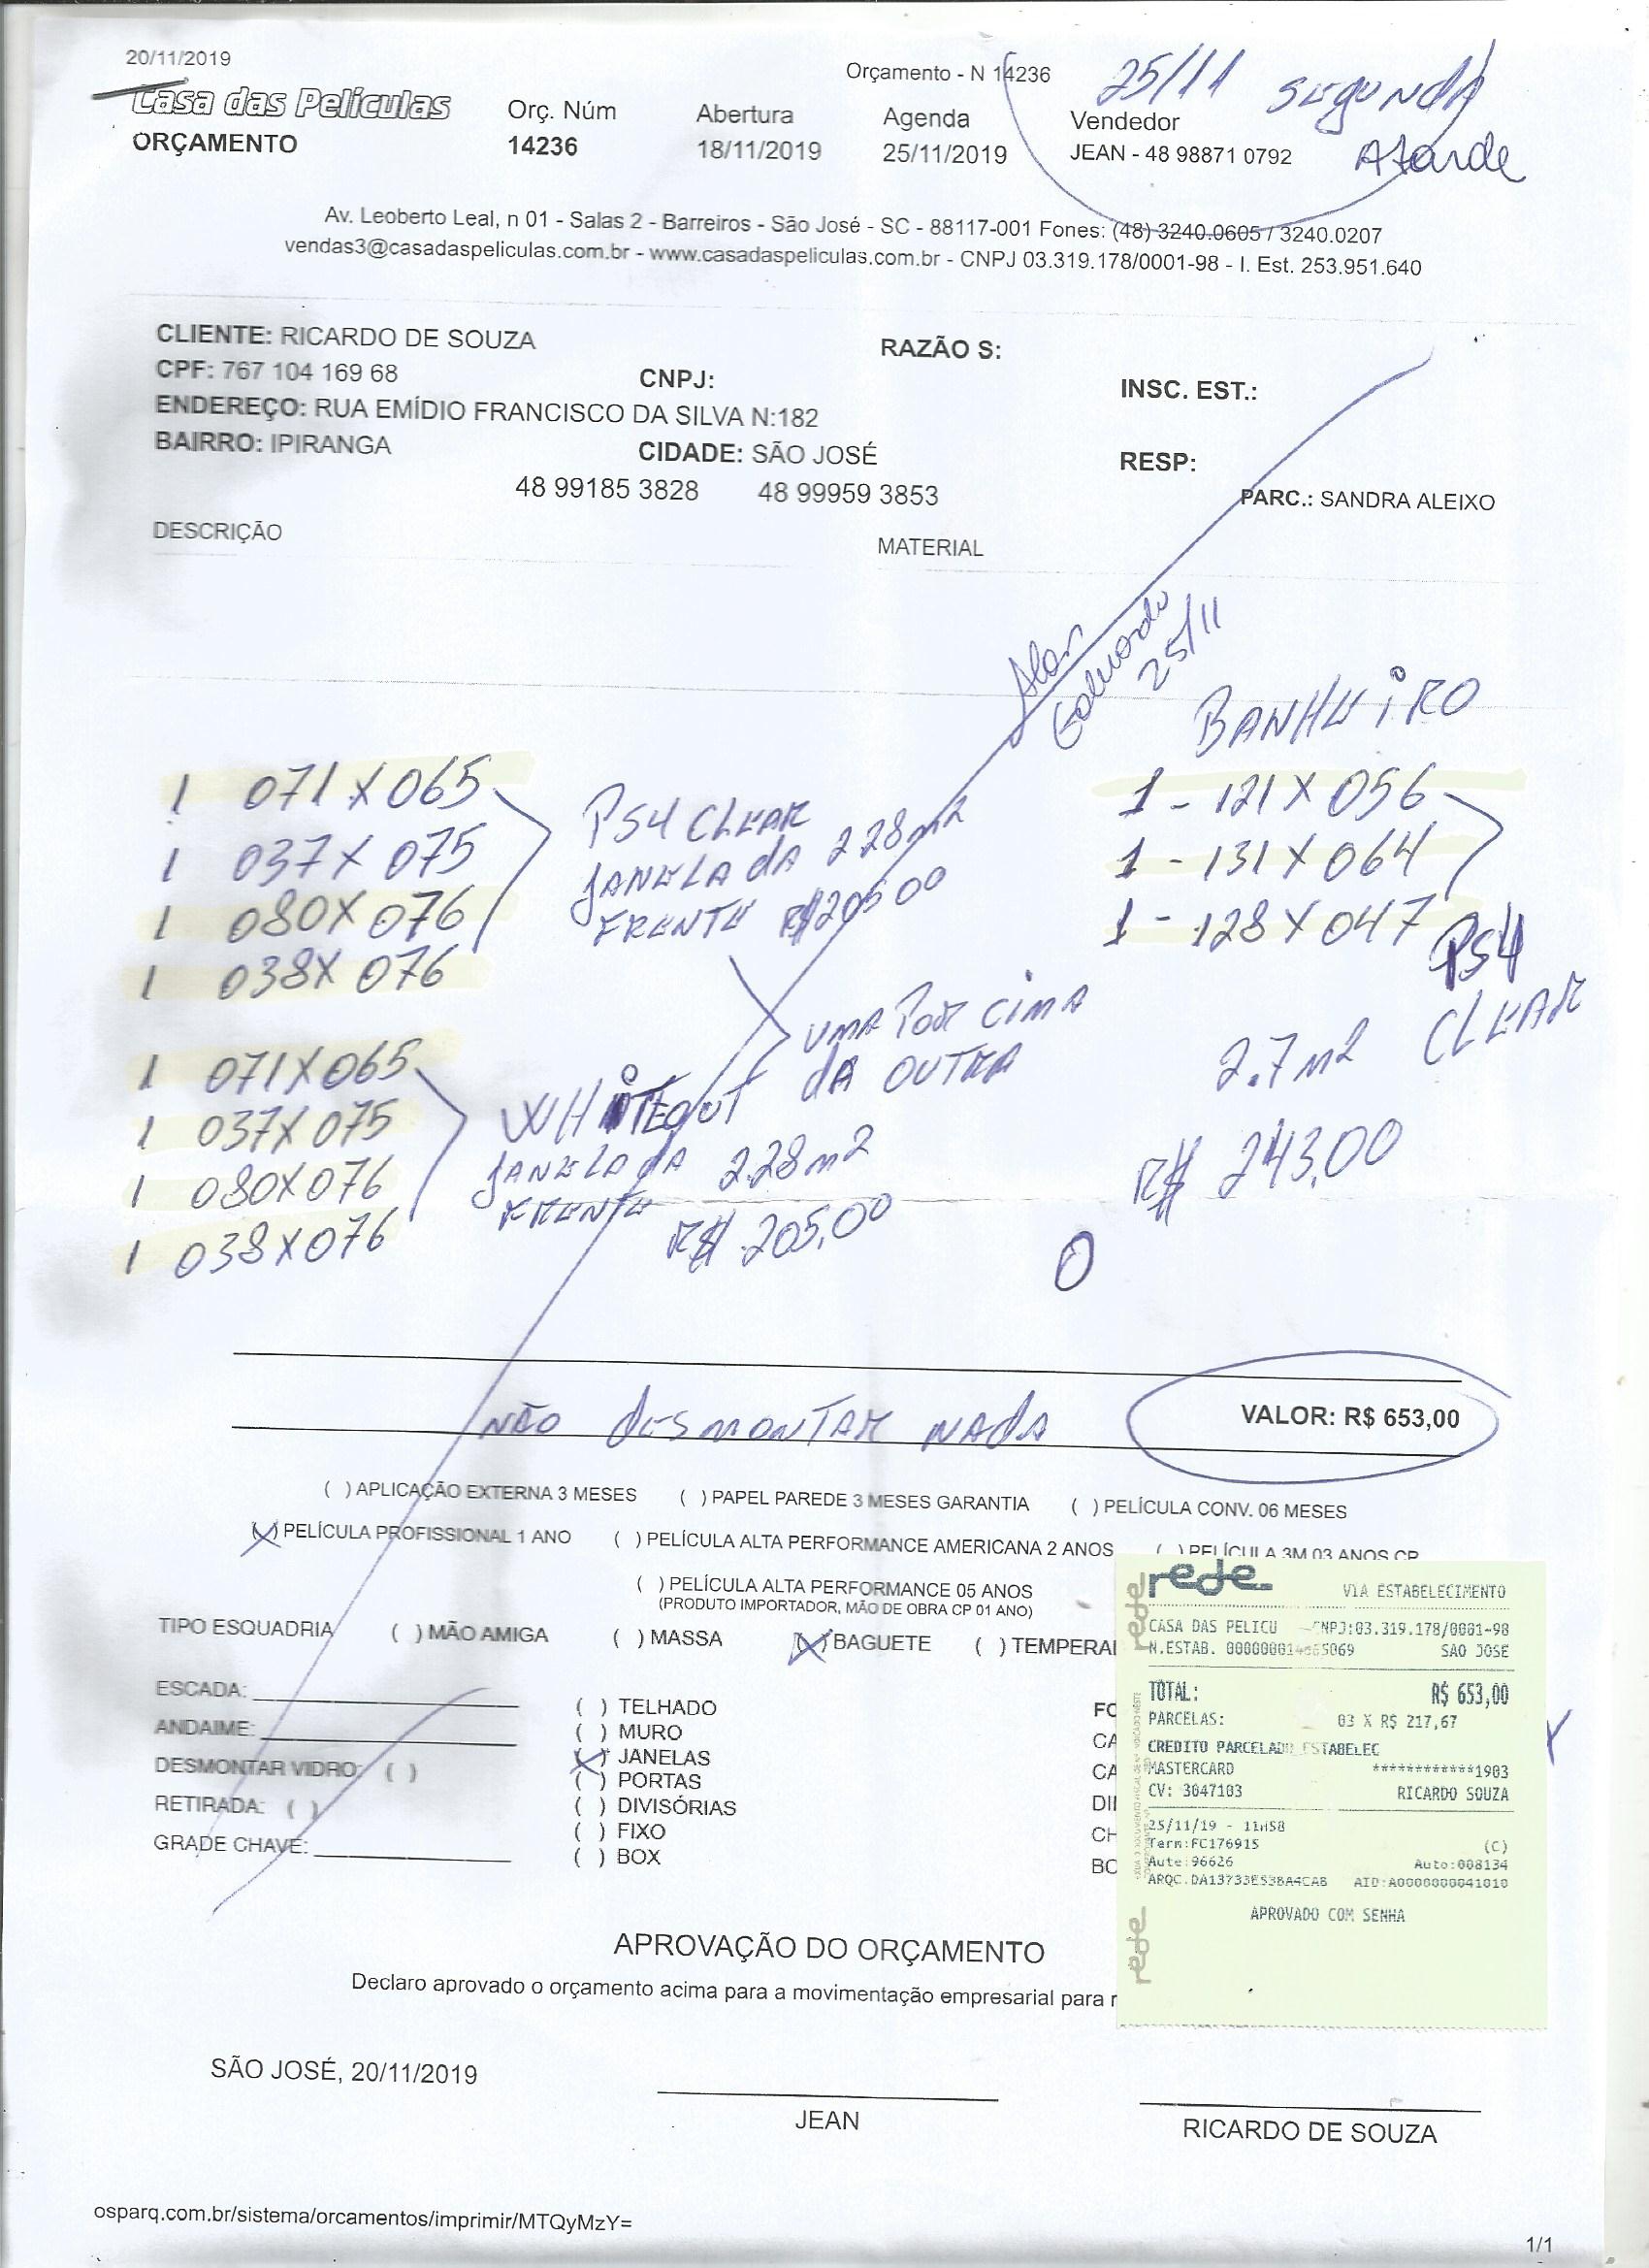 20/11/2019
Orçamento - N 14236
25/11 SEGUNDA
Atarde
Casa das Películas
ORÇAMENTO
Orç. Núm
14236
Abertura
18/11/2019
Agenda
25/11/2019
Vendedor
JEAN - 48 98871 0792
Av. Leoberto Leal, n 01 - Salas 2 - Barreiros - São José - SC - 88117-001 Fones: (48) 3240.0605 / 3240.0207
vendas3@casadaspeliculas.com.br - www.casadaspeliculas.com.br - CNPJ 03.319.178/0001-98 - I. Est. 253.951.640
CLIENTE: RICARDO DE SOUZA
RAZÃO S:
CPF: 767 104 169 68
CNPJ:
INSC. EST.:
ENDEREÇO: RUA EMÍDIO FRANCISCO DA SILVA N:182
BAIRRO: IPIRANGA
CIDADE: SÃO JOSÉ
RESP:
48 99185 3828 48 99959 3853
PARC.: SANDRA ALEIXO
DESCRIÇÃO
MATERIAL
25/11
BANHEIRO
1 071 X 065
1 037 X 075
1 080 X 076
1 038 X 076
PS4 CLEAR
JANELA DA 228m2
FRENTE R$ 205 00
1 - 121 X 056
1 - 131 X 064
1 - 128 X 047
PS4
CLEAR
2.7m2
R$ 243,00
UMA POR CIMA
DA OUTRA
1 071 X 065
1 037 X 075
1 080 X 076
1 038 X 076
WHITEOUT
JANELA DA 2.28m2
FRENTE
R$ 205,00
0
NÃO DESMONTAR NADA
VALOR: R$ 653,00
( ) APLICAÇÃO EXTERNA 3 MESES ( ) PAPEL PAREDE 3 MESES GARANTIA ( ) PELÍCULA CONV. 06 MESES
(X) PELÍCULA PROFISSIONAL 1 ANO ( ) PELÍCULA ALTA PERFORMANCE AMERICANA 2 ANOS ( ) PELÍCULA 3M 03 ANOS CP
( ) PELÍCULA ALTA PERFORMANCE 05 ANOS
(PRODUTO IMPORTADOR, MÃO DE OBRA CP 01 ANO)
TIPO ESQUADRIA ( ) MÃO AMIGA ( ) MASSA (X) BAGUETE ( ) TEMPERA
ESCADA:
ANDAIME:
DESMONTAR VIDRO: ( )
RETIRADA: ( )
GRADE CHAVE:
( ) TELHADO
( ) MURO
(X) JANELAS
( ) PORTAS
( ) DIVISÓRIAS
( ) FIXO
( ) BOX
FO
CA
CA
DI
CH
BO
rede
VIA ESTABELECIMENTO
CASA DAS PELICU CNPJ:03.319.178/0001-98
SAO JOSE
TOTAL: R$ 653,00
PARCELAS: 03 X R$ 217,67
CREDITO PARCELADO ESTABELEC
MASTERCARD ************1903
CV: 3047103 RICARDO SOUZA
25/11/19 - 11H58
Term:FC176915 (C)
Aute:96626 Auto:008134
AID:A0000000041010
APROVADO COM SENHA
rede
rede
APROVAÇÃO DO ORÇAMENTO
Declaro aprovado o orçamento acima para a movimentação empresarial para r
SÃO JOSÉ, 20/11/2019
JEAN
RICARDO DE SOUZA
osparq.com.br/sistema/orcamentos/imprimir/MTQyMzY=
1/1